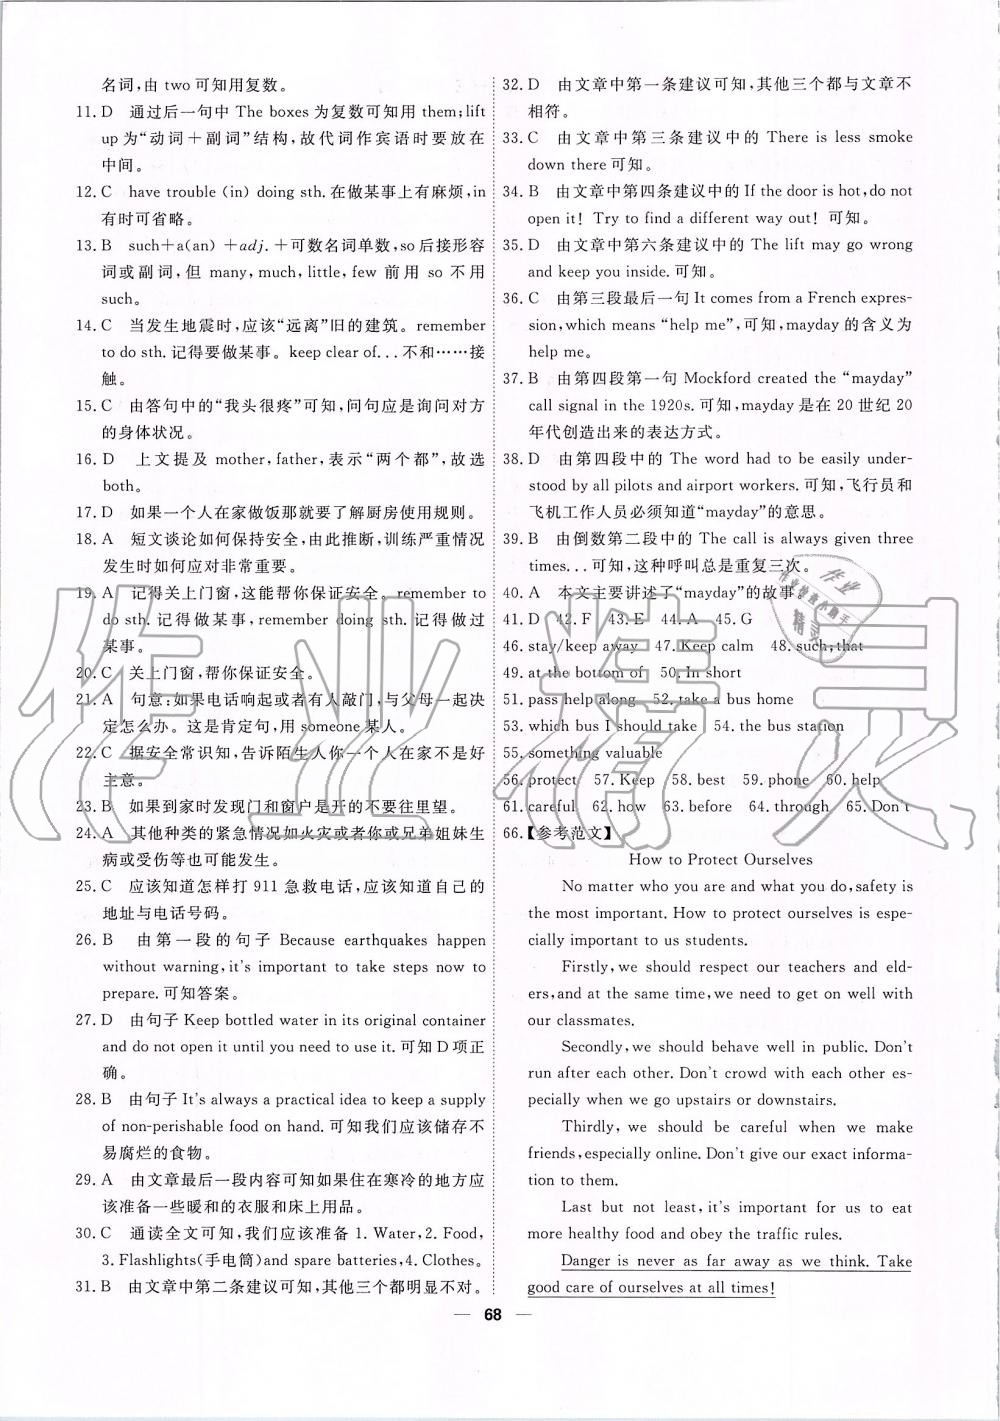 名词,由 two 可知用复数。
11. D 通过后一句中 The boxes 为复数可知用 them;lift
up 为“动词+副词”结构,故代词作宾语时要放在
中间。
12. C have trouble (in) doing sth. 在做某事上有麻烦,in
有时可省略。
13. B such+a(an) +adj.+可数名词单数,so 后接形容
词或副词,但 many,much,little,few 前用 so 不用
such。
14. C 当发生地震时,应该“远离”旧的建筑。remember
to do sth. 记得要做某事。keep clear of... 不和……接
触。
15. C 由答句中的“我头很疼”可知,问句应是询问对方
的身体状况。
16. D 上文提及 mother,father,表示“两个都”,故选
both。
17. D 如果一个人在家做饭那就要了解厨房使用规则。
18. A 短文谈论如何保持安全,由此推断,训练严重情况
发生时如何应对非常重要。
19. A 记得关上门窗,这能帮你保证安全。remember to
do sth. 记得做某事,remember doing sth. 记得做过
某事。
20. C 关上门窗,帮你保证安全。
21. A 句意:如果电话响起或者有人敲门,与父母一起决
定怎么办。这是肯定句,用 someone 某人。
22. C 据安全常识知,告诉陌生人你一个人在家不是好
主意。
23. B 如果到家时发现门和窗户是开的不要往里望。
24. A 其他种类的紧急情况如火灾或者你或兄弟姐妹生
病或受伤等也可能发生。
25. C 应该知道怎样打 911 急救电话,应该知道自己的
地址与电话号码。
26. B 由第一段的句子 Because earthquakes happen
without warning,it's important to take steps now to
prepare. 可知答案。
27. D 由句子 Keep bottled water in its original container
and do not open it until you need to use it. 可知 D 项正
确。
28. B 由句子 It's always a practical idea to keep a supply
of non-perishable food on hand. 可知我们应该储存不
易腐烂的食物。
29. A 由文章最后一段内容可知如果住在寒冷的地方应
该准备一些暖和的衣服和床上用品。
30. C 通读全文可知,我们应该准备 1. Water,2. Food,
3. Flashlights(手电筒)and spare batteries,4. Clothes。
31. B 由文章中第二条建议可知,其他三个都明显不对。
32. D 由文章中第一条建议可知,其他三个都与文章不
相符。
33. C 由文章中第三条建议中的 There is less smoke
down there 可知。
34. B 由文章中第四条建议中的 If the door is hot,do not
open it! Try to find a different way out! 可知。
35. D 由文章中第六条建议中的 The lift may go wrong
and keep you inside. 可知。
36. C 由第三段最后一句 It comes from a French expres-
sion,which means “help me”,可知,mayday 的含义为
help me。
37. B 由第四段第一句 Mockford created the “mayday”
call signal in the 1920s. 可知,mayday 是在 20 世纪 20
年代创造出来的表达方式。
38. D 由第四段中的 The word had to be easily under-
stood by all pilots and airport workers. 可知,飞行员和
飞机工作人员必须知道“mayday”的意思。
39. B 由倒数第二段中的 The call is always given three
times... 可知,这种呼叫总是重复三次。
40. A 本文主要讲述了“mayday”的故事。
41. D 42. F 43. E 44. A 45. G
46. stay/keep away 47. Keep calm 48. such;that
49. at the bottom of 50. In short
51. pass help along 52. take a bus home
53. which bus I should take 54. the bus station
55. something valuable
56. protect 57. Keep 58. best 59. phone 60. help
61. careful 62. how 63. before 64. through 65. Don't
66.【参考范文】
How to Protect Ourselves
No matter who you are and what you do,safety is
the most important. How to protect ourselves is espe-
cially important to us students.
Firstly,we should respect our teachers and eld-
ers,and at the same time,we need to get on well with
our classmates.
Secondly,we should behave well in public. Don't
run after each other. Don't crowd with each other es-
pecially when we go upstairs or downstairs.
Thirdly, we should be careful when we make
friends,especially online. Don't give our exact informa-
tion to them.
Last but not least,it's important for us to eat
more healthy food and obey the traffic rules.
Danger is never as far away as we think. Take
good care of ourselves at all times!
— 68 —
作业精灵
作业
作业检查小助手
精灵